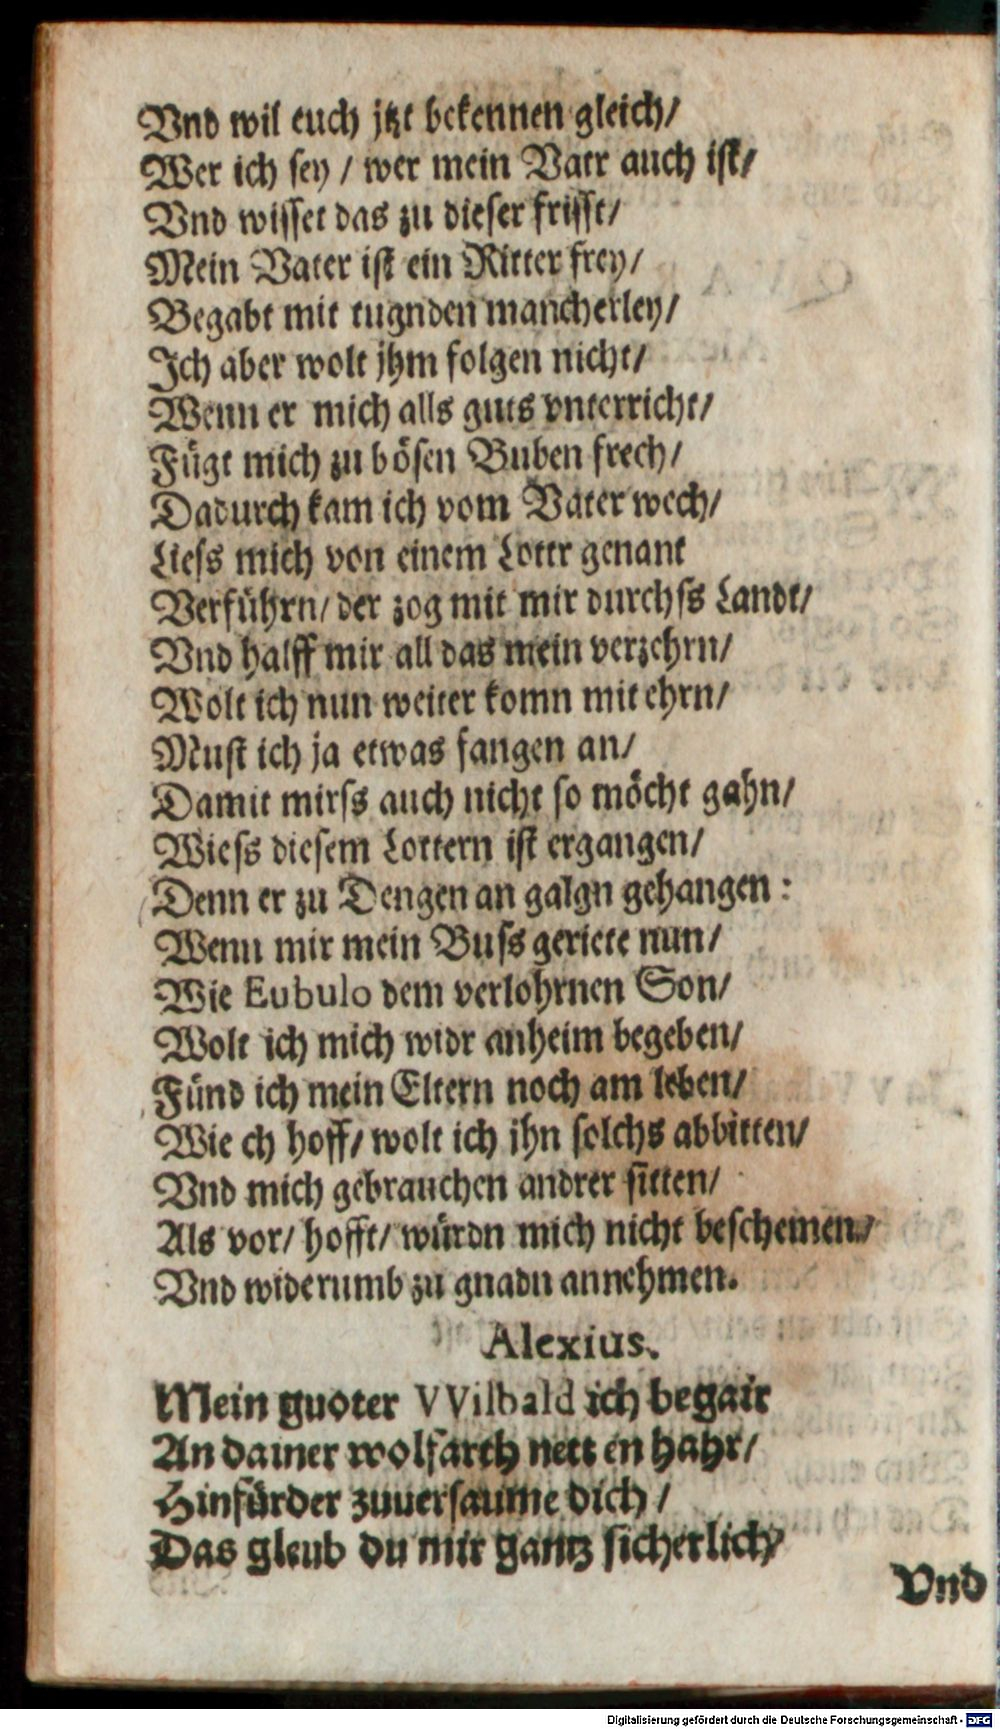 Vnd wil euch jtzt bekennen gleich/
Wer ich sey / wer mein Vatr auch ist/
Vnd wisset das zu dieser frisst/
Mein Vater ist ein Ritter frey/
Begabt mit tugnden mancherley/
Ich aber wolt jhm folgen nicht/
Wenn er mich alls guts vnterricht/
Fügt mich zu bösen Buben frech/
Dadurch kam ich vom Vater wech/
Liess mich von einem Lottr genant
Verführn/ der zog mit mir durchss Landt/
Vnd halff mir all das mein verzehrn/
Wolt ich nun weiter komn mit ehrn/
Must ich ja etwas fangen an/
Damit mirss auch nicht so möcht gahn/
Wiess diesem Lottern ist ergangen/
Denn er zu Dengen an galgn gehangen :
Wenn mir mein Buss geriete nun/
Wie Eubulo dem verlohrnen Son/
Wolt ich mich widr anheim begeben/
Fünd ich mein Eltern noch am leben/
Wie ch hoff/ wolt ich jhn solchs abbitten/
Vnd mich gebrauchen andrer sitten/
Als vor/ hofft/ würdn mich nicht beschemen./
Vnd widerumb zu gnadn annehmen.
Alexius.
Mein guoter VVilbald ich begair
An dainer wolfarth nett en hahr/
Hinfürder zuuersaume dich /
Das gleub du mir gantz sicherlich/
Vnd
Digitalisierung gefördert durch die Deutsche Forschungsgemeinschaft - DFG